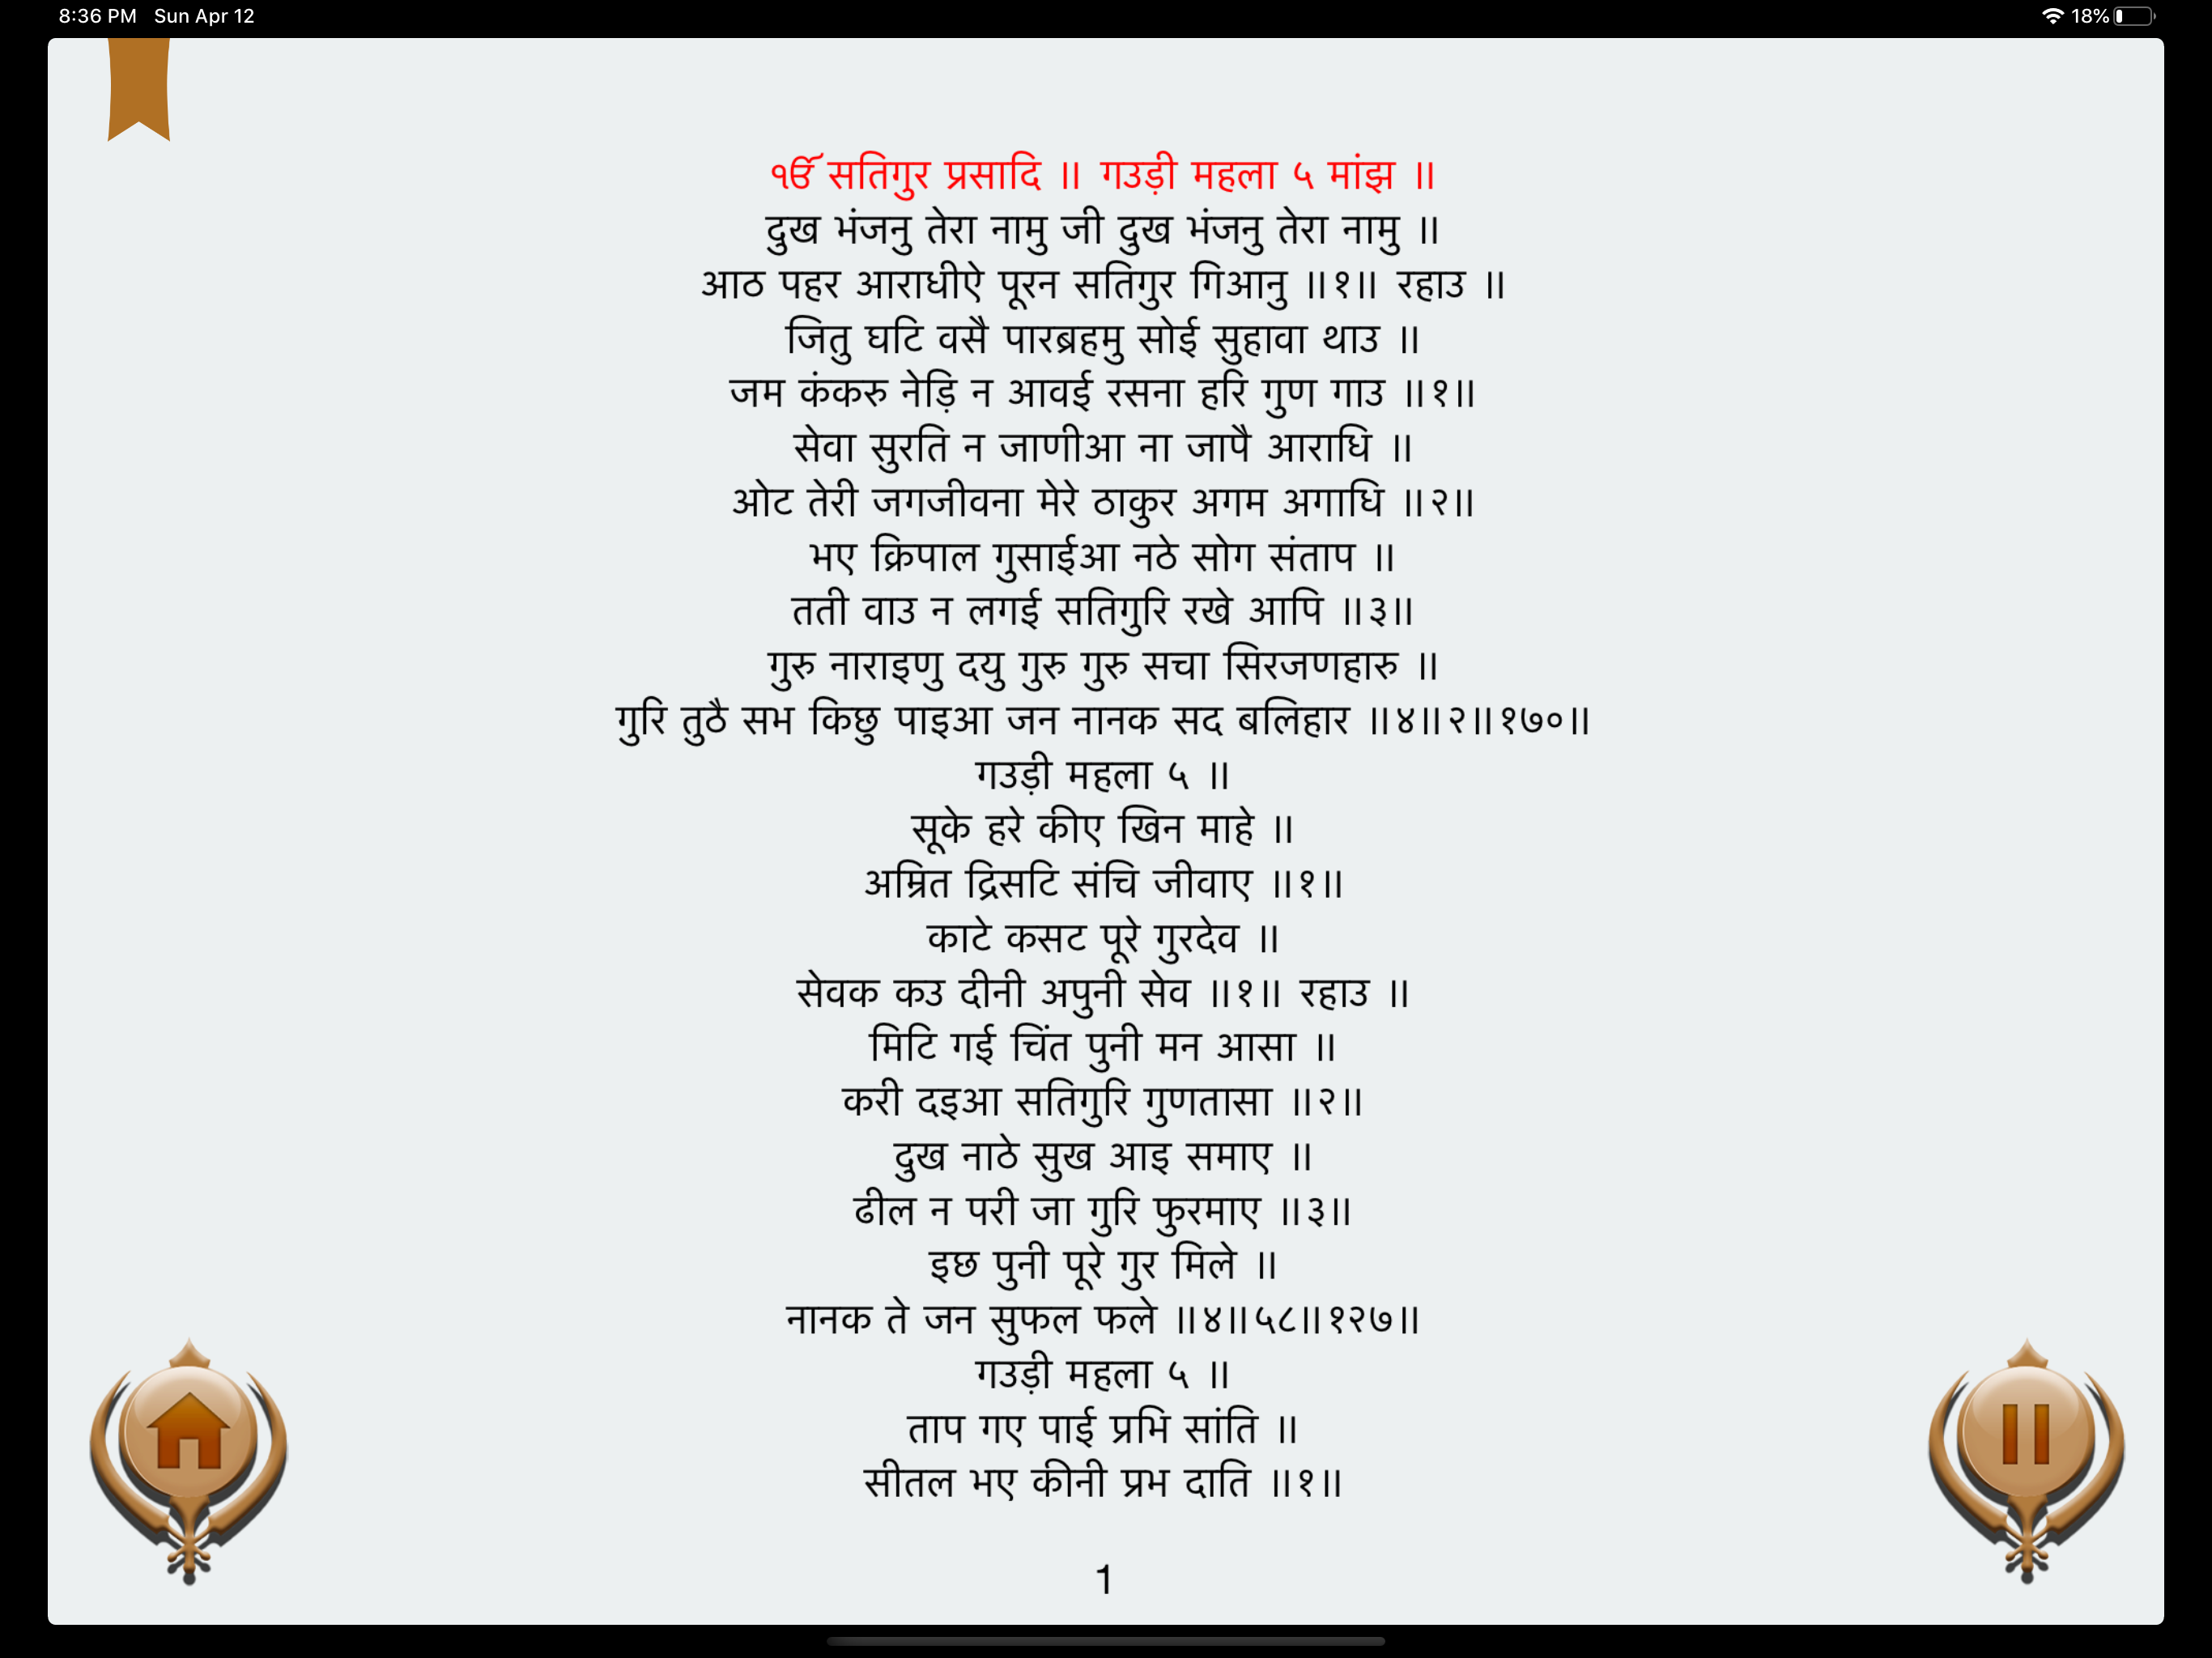 8:36 PM Sun Apr 12 18%
ੴ सतिगुर प्रसादि ॥ गउड़ी महला ५ मांझ ॥
दुख भंजनु तेरा नामु जी दुख भंजनु तेरा नामु ॥
आठ पहर आराधीऐ पूरन सतिगुर गिआनु ॥१॥ रहाउ ॥
जितु घटि वसै पारब्रहमु सोई सुहावा थाउ ॥
जम कंकरु नेड़ि न आवई रसना हरि गुण गाउ ॥१॥
सेवा सुरति न जाणीआ ना जापै आराधि ॥
ओट तेरी जगजीवना मेरे ठाकुर अगम अगाधि ॥२॥
भए क्रिपाल गुसाईआ नठे सोग संताप ॥
तती वाउ न लगई सतिगुरि रखे आपि ॥३॥
गुरु नाराइणु दयु गुरु गुरु सचा सिरजणहारु ॥
गुरि तुठै सभ किछु पाइआ जन नानक सद बलिहार ॥४॥२॥१७०॥
गउड़ी महला ५ ॥
सूके हरे कीए खिन माहे ॥
अम्रित द्रिसटि संचि जीवाए ॥१॥
काटे कसट पूरे गुरदेव ॥
सेवक कउ दीनी अपुनी सेव ॥१॥ रहाउ ॥
मिटि गई चिंत पुनी मन आसा ॥
करी दइआ सतिगुरि गुणतासा ॥२॥
दुख नाठे सुख आइ समाए ॥
ढील न परी जा गुरि फुरमाए ॥३॥
इछ पुनी पूरे गुर मिले ॥
नानक ते जन सुफल फले ॥४॥५८॥१२७॥
गउड़ी महला ५ ॥
ताप गए पाई प्रभि सांति ॥
सीतल भए कीनी प्रभ दाति ॥१॥
1